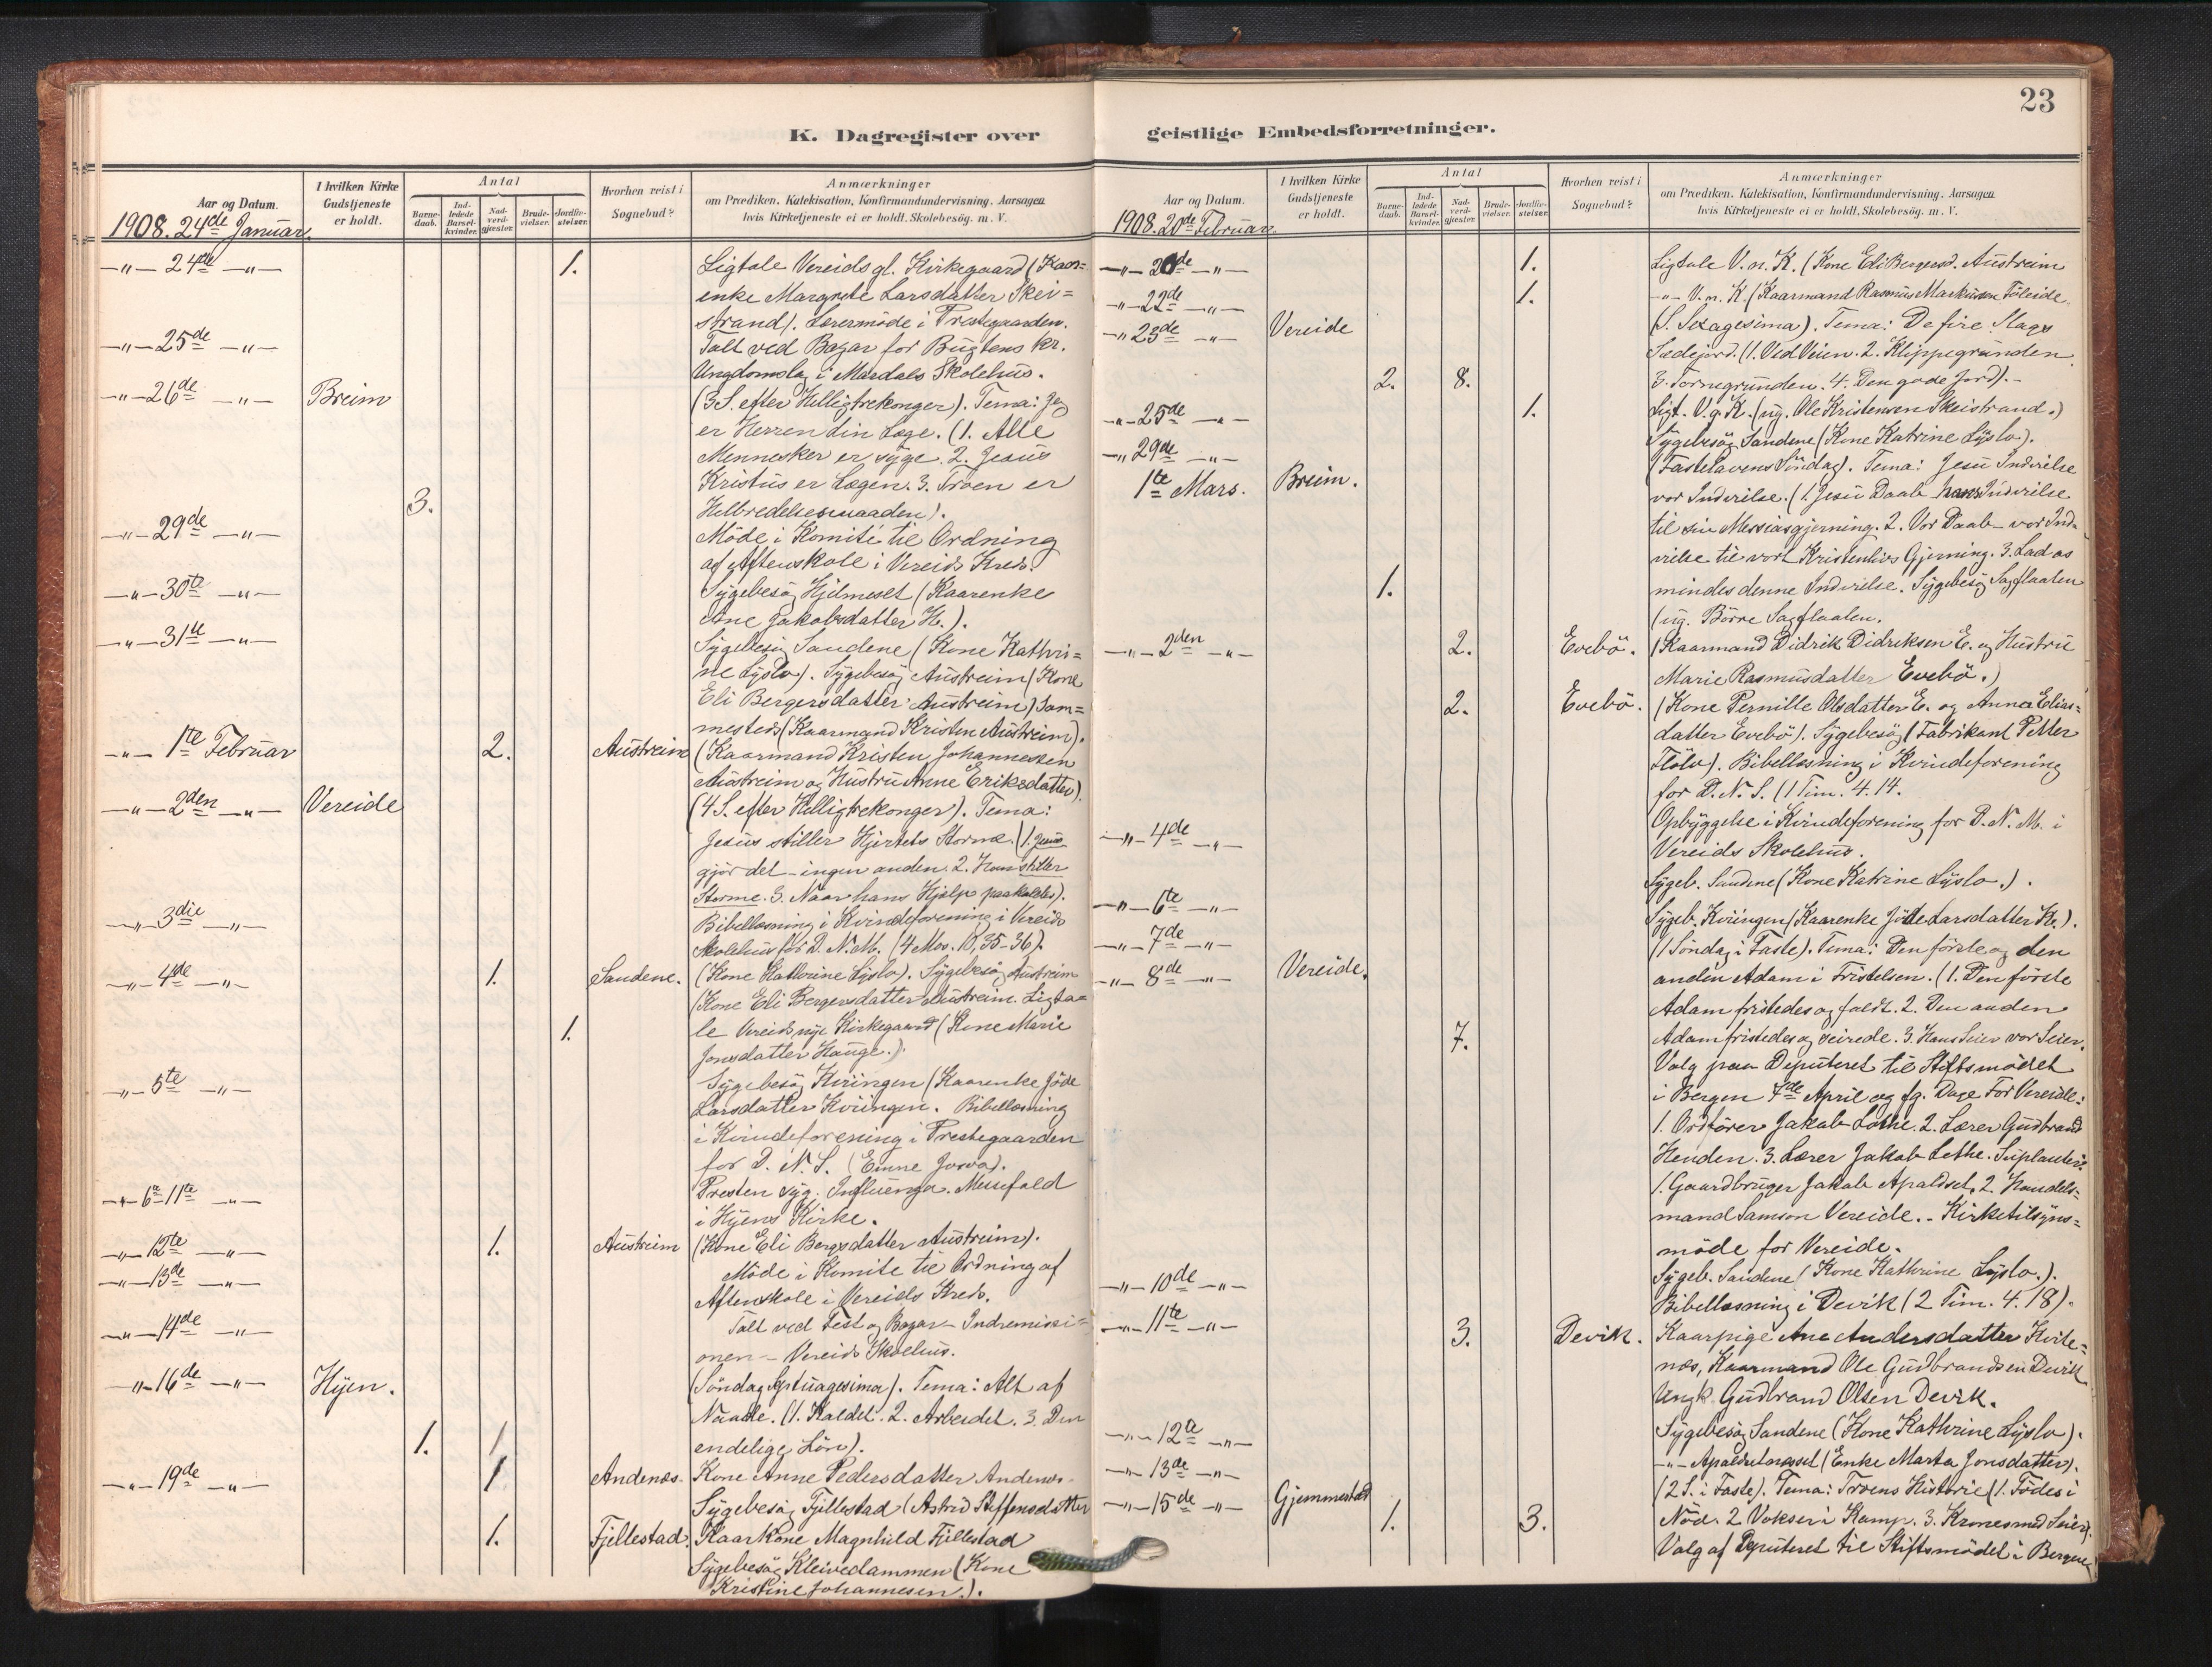 23
K. Dagregister over
Aar og Datum.
I hvilken Kirke Gudstjeneste er holdt.
Antal
Barne-daab.
Ind-ledede Barsel-kvinder.
Nad-verd-gjæster.
Brude-vielser.
Jordfæ-stelser.
Hvorhen reist i Sognebud?
Anmærkninger
om Prædiken, Katekisation, Konfirmandundervisning. Aarsagen
hvis Kirketjeneste ei er holdt. Skolebesög. m. V.
1908. 24de Januar.
-"- 24de -"- 1. Ligtale Vereids gl. Kirkegaard (Kaar=
enke Margrete Larsdatter Skei=
strand). Lærermöde i Prestegaarden.
-"- 25de -"- Talt ved Bazar for Bugtens kr.
Ungdomslag i Mardals Skolehus.
-"- 26de -"- Breim (3 S. efter Helligtrekonger). Tema: Jeg
er Herren din Læge. (1. Alle
Mennesker er syge. 2. Jesus
Kristus er Lægen. 3. Troen er
3. Helbredelsesmaaden).
-"- 29de -"- Möde i Komité til Ordning
af Aftenskole i Vereids Kreds.
-"- 30te -"- Sygebesög Hjelmeset (Kaarenke
Ane Jakobsdatter H.).
-"- 31te -"- Sygebesög Sandene (Kone Kathri=
ne Lyslo). Sygebesög Austreim (Kone
Eli Bergersdatter Austreim) Sam=
mesteds (Kaarmand Kristen Austreim).
-"- 1te Februar 2. Austreim (Kaarmand Kristen Johannessen
Austreim og Hustru Anne Eriksdatter).
-"- 2den -"- Vereide (4 S. efter Helligtrekonger). Tema:
Jesus stiller Hjertets Storme. (1. Jesus
gjör det - ingen anden. 2. Han stiller
Storme. 3. Naar hans Hjælp paakaldes).
-"- 3die -"- Bibellæsning i Kvindeforening i Vereids
Skolehus for D. N. M. (4 Mos. 10, 35-36).
-"- 4de -"- 1. Sandene. (Kone Kathrine Lyslo). Sygebesög Austreim
(Kone Eli Bergersdatter Austreim. Ligta=
1. le Vereids nye Kirkegaard (Kone Marie
Jonsdatter Hauge.).
-"- 5te -"- Sygebesög Kviingen (Kaarenke Jöde
Larsdatter Kviingen. Bibellæsning
i Kvindeforening i Prestegaarden
for D. N. S. (Emne Josva).
-"- 6te-11te -"- Presten syg. Influenza. Messefald
i Hyens Kirke.
-"- 12te -"- 1. Austreim (Kone Eli Bergsdatter Austreim).
-"- 13de -"- Möde i Komite til Ordning af
Aftenskole i Vereids Kreds.
-"- 14de -"- Talt ved Fest og Bazar - Indremissi=
onen - Vereids Skolehus.
-"- 16de -"- Hyen. (Söndag Septuagesima). Tema: Alt af
Naade. (1. Kaldet. 2. Arbeidet. 3. Den
1. 1 endelige Lön).
-"- 19de -"- 1 Andenæs. Kone Anne Pedersdatter Andenæs.
Sygebesög Fjellestad (Astrid Steffensdatter
1. Fjellestad. Kaarkone Magnhild Fjellestad
Sygebesög Kleivedammen (Kone
Kristine Johannesen.).
geistlige Embedsforretninger.
Aar og Datum.
I hvilken Kirke Gudstjeneste er holdt.
Antal
Barne-daab.
Ind-ledede Barsel-kvinder.
Nad-verd-gjæster.
Brude-vielser.
Jordfæ-stelser.
Hvorhen reist i Sognebud?
Anmærkninger
om Prædiken, Katekisation, Konfirmandundervisning. Aarsagen
hvis Kirketjeneste ei er holdt. Skolebesög. m. V.
1908. 20de Februar.
-"- 20de -"- 1. Ligtale V. n. K. (Kone Eli Bergersd. Austreim
-"- 22de -"- 1. -"- V. n. K. (Kaarmand Rasmus Markusen
-"- 23de -"- Vereide (S. Sexagesima). Tema: De fire Slags
Sædejord. (1. Ved Veien. 2. Klippegrunden
2. 8. 3. Tornegrunden. 4. Den gode Jord). -
-"- 25de -"- 1. Ligt. V. g. K. (ug. Ole Kristensen Skeistrand.)
-"- 29de -"- Sygebesög Sandene (Kone Katrine Lyslo).
1te Mars. Breim. (Fastelavens Söndag). Tema: Jesu Indvielse
vor Indvielse. (1. Jesu Daab hans Indvielse
til sin Messiasgjerning. 2. Vor Daab - vor Ind-
vielse til vort Kristenlivs Gjerning. 3. Lad os
1. mindes denne Indvielse. Sygebesög Sagflaaten
(ug. Börre Sagflaaten.
-"- 2den -"- 2. Evebö. (Kaarmand Didrik Didriksen E. og Hustru
Marie Rasmusdatter Evebö.)
2. Evebö. (Kone Pernille Olsdatter E. og Anna Elias=
datter Evebö). Sygebesög (Fabrikant Petter
Flölo). Bibellæsning i Kvindeforening
for D. N. S. (1 Tim. 4. 14.
-"- 4de -"- Opbyggelse i Kvindeforening for D. N. M. i
Vereids Skolehus.
Sygeb. Sandene (Kone Katrine Lyslo.).
-"- 6te -"- Sygeb. Kviingen (Kaarenke Jöde Larsdatter K.).
-"- 7de -"-
-"- 8de -"- Vereide. (1 Söndag i Faste). Tema: Den förste og den
anden Adam i Fristelsen. (1. Den förste
Adam fristedes og faldt. 2. Den anden
7. Adam fristedes og seirede. 3. Hans Seier vor Seier.
Valg paa Deputeret til Stiftsmödet
i Bergen 7de April og fg. Dage For Vereide:
1. Ordförer Jakob Lothe. 2. Lærer Gudbrand
Henden. 3. Lærer Jakob Lothe. Suplanter:
1. Gaardbruger Jakob Apaldset, 2. Handels=
mand Samson Vereide. - Kirketilsyns=
möde for Vereide.
-"- 10de -"- Sygeb. Sandene (Kone Kathrine Lyslo.).
Bibellæsning i Devik (2 Tim. 4. 18).
-"- 11te -"- 3. Devik. Kaarpige Ane Andersdatter Kvite=
næs, Kaarmand Ole Gudbrandsen Devik
Ungk. Gudbrand Olsen Devik.
-"- 12te -"- Sygebesög Sandene (Kone Kathrine Lyslo).
-"- 13de -"- -"- (Enke Marta Jonsdatter).
-"- 15de -"- Gjemmestad (2 S. i Faste). Tema: Troens Historie (1. Födes i
1. 3. Nöd. 2. Vokser i Kamp. 3. Krones med Seier).
Valg af Deputeret til Stiftsmödet i Bergen